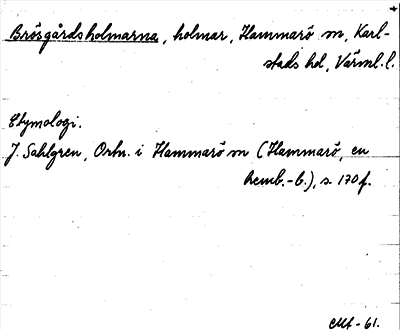 Brösgårdsholmarna, holmar, Hammarö sn, Karl-
stads hd, Värml. l.
Etymologi.
J. Sahlgren, Ortn. i Hammarö sn (Hammarö, en
hemb.-b.), s. 170 f.
-61.